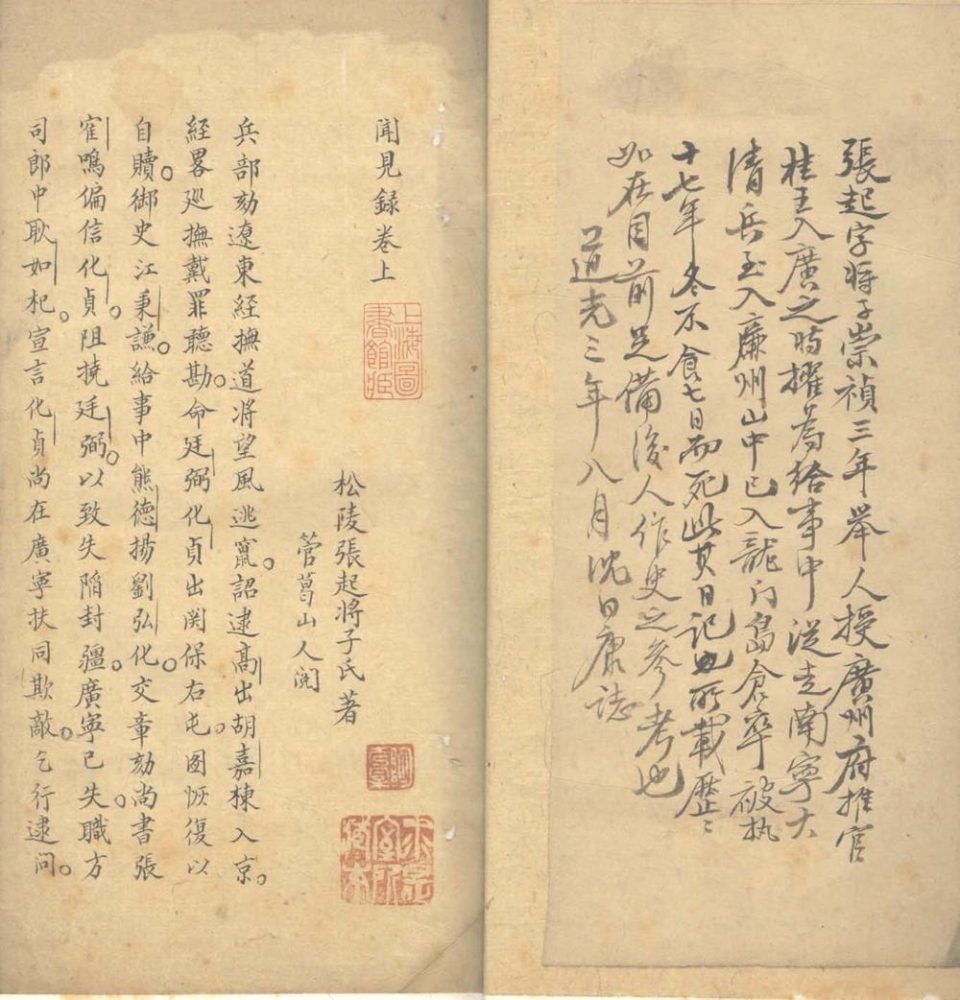 張起字將子崇禎三年举人授廣州府推官
桂王入廣之時擢為給事中從走南寧大
清兵至入廉州山中已入龍门島倉卒被执
十七年冬不食七日而死此其日記也所載歷〻
如在目前足備後人作史之参考也
道光三年八月沈日康誌
聞見録卷上
上海圖書館藏
松陵張起將子氏著
菅葛山人閲
兵部劾遼東經撫道將望風逃竄。詔逮高出胡嘉棟入京。
経畧廵撫戴罪聽勘。命廷弼化貞出関保右屯。图恢復以
自贖。御史江秉謙。給事中熊德揚劉弘化。交章劾尚書張
寉鳴偏信化貞。阻撓廷弼。以致失陷封疆。廣寧已失。職方
司郎中耿如杞。宣言化貞尚在廣寧扶同欺敵。乞行逮问。